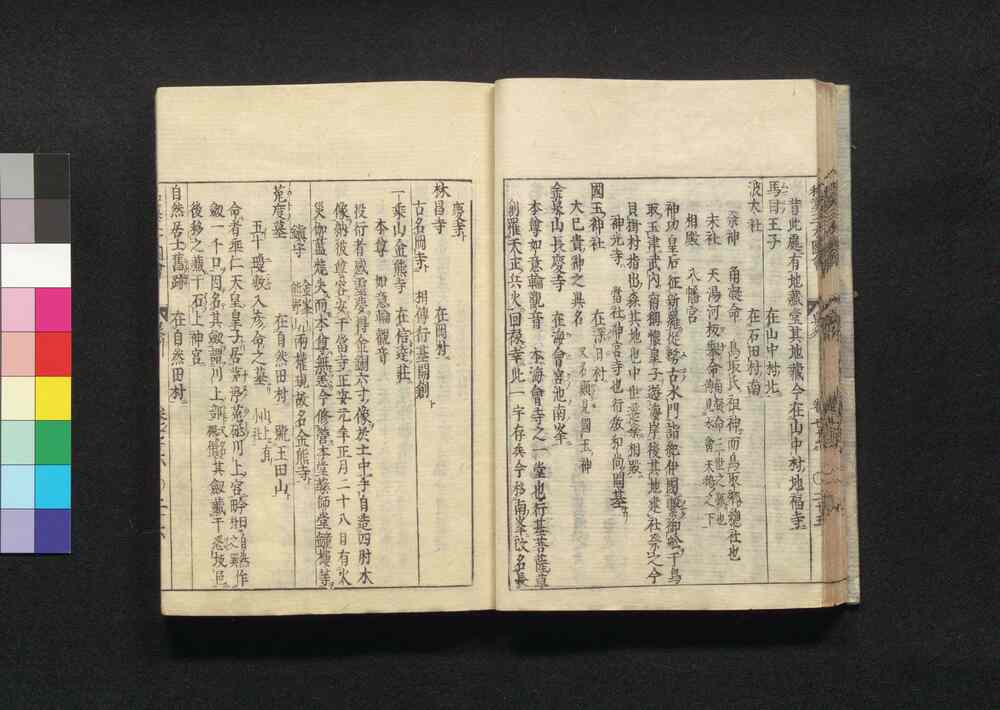 昔此處有地藏堂其地藏今在山中村地福寺
馬目王子　在山中村北
波太社　在石田村南
祭神　角凝命　鳥取氏祖神而鳥取郷總社也
末社　天湯河板擧命
相殿　八幡宮
神功皇后征新羅從務古水門詣紀伊國繋御舩于鳥
取玉津武内宿禰懷皇子遊海岸後其地建社祭之今
貝掛村指也森其地也中世遷祭相殿
神光寺　當社神宮寺也行教和尚開基
國玉神社　在深日村
大己貴神之異名　又名顯見國玉神
金嶺山長慶寺　在海會宮池南峯
本尊如意輪觀音　本海會寺之一堂也行基菩薩草
創罹天正兵火回祿幸此一字存矣今移南峯改名長
慶寺
林昌寺　在岡村
古名岡寺　相傳行基開創
一乘山金熊寺　在信達莊
本尊　如意輪觀音
役行者感靈夢得金銅六寸像於土中手自造四肘木
像納彼尊容安于當寺正安元年正月二十八日有火
災伽藍燒失而本尊無恙今修營本堂藥師堂鐘樓等
鎮守　金峯　熊野山　兩權現故名金熊寺
菟度墓　在自然田村　號王田山
五十瓊敷入彦命之墓
命者垂仁天皇皇子居茅渟菟砥川上宮
劔一千口因名其劔謂川上部
其劔藏于忍坂邑
後移之藏于石上神宮
自然居士舊跡　在自然田村